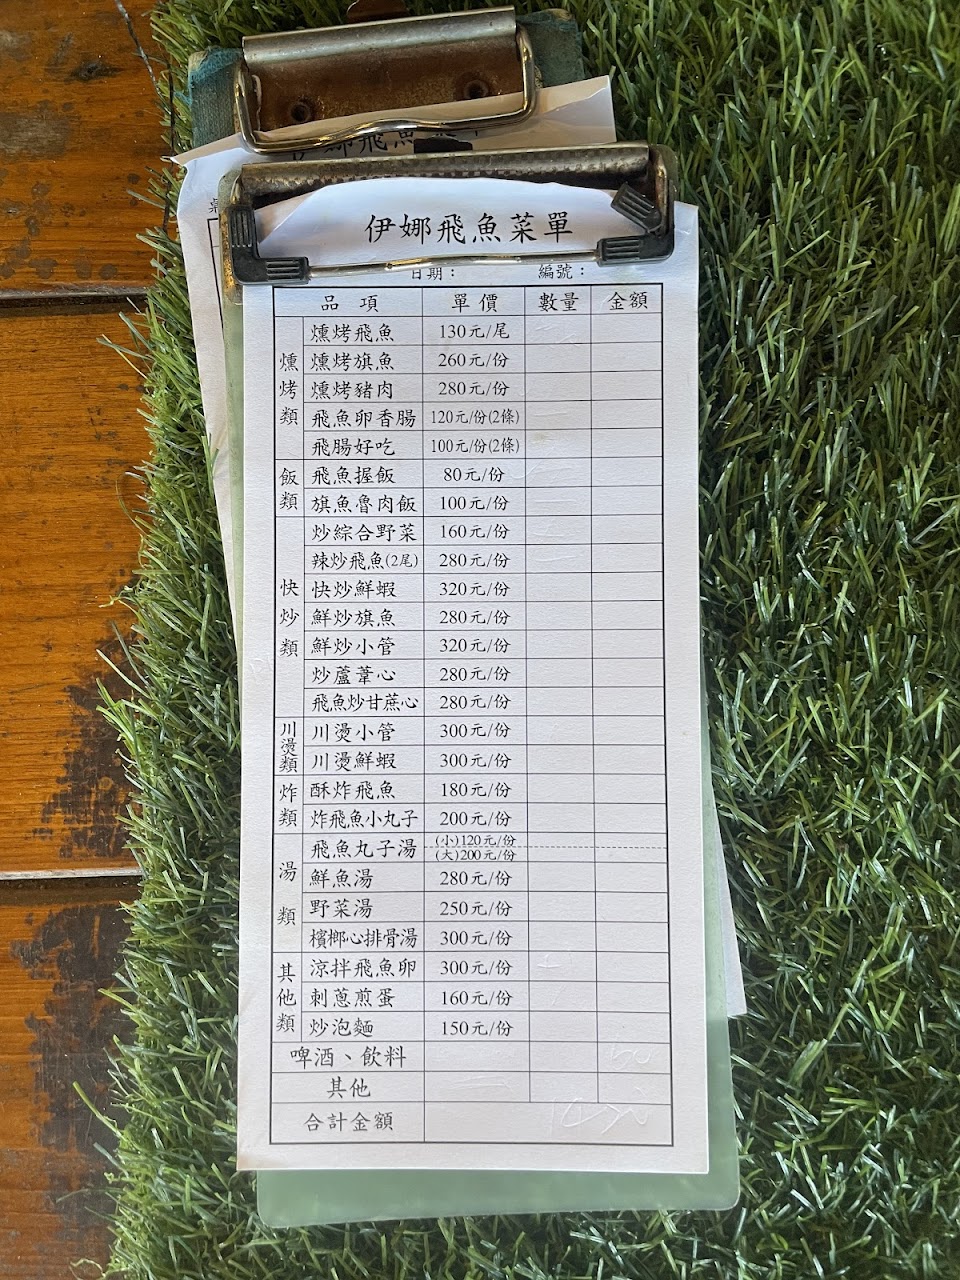 伊娜飛魚菜單
日期： 編號：
品項 單價 數量 金額
燻烤類
燻烤飛魚 130元/尾
燻烤旗魚 260元/份
燻烤豬肉 280元/份
飛魚卵香腸 120元/份(2條)
飛腸好吃 100元/份(2條)
飯類
飛魚握飯 80元/份
旗魚魯肉飯 100元/份
快炒類
炒綜合野菜 160元/份
辣炒飛魚(2尾) 280元/份
快炒鮮蝦 320元/份
鮮炒旗魚 280元/份
鮮炒小管 320元/份
炒蘆葦心 280元/份
飛魚炒甘蔗心 280元/份
川燙類
川燙小管 300元/份
川燙鮮蝦 300元/份
炸類
酥炸飛魚 180元/份
炸飛魚小丸子 200元/份
湯類
飛魚丸子湯 (小)120元/份
(大)200元/份
鮮魚湯 280元/份
野菜湯 250元/份
檳榔心排骨湯 300元/份
其他類
涼拌飛魚卵 300元/份
刺蔥煎蛋 160元/份
炒泡麵 150元/份
啤酒、飲料
其他
合計金額